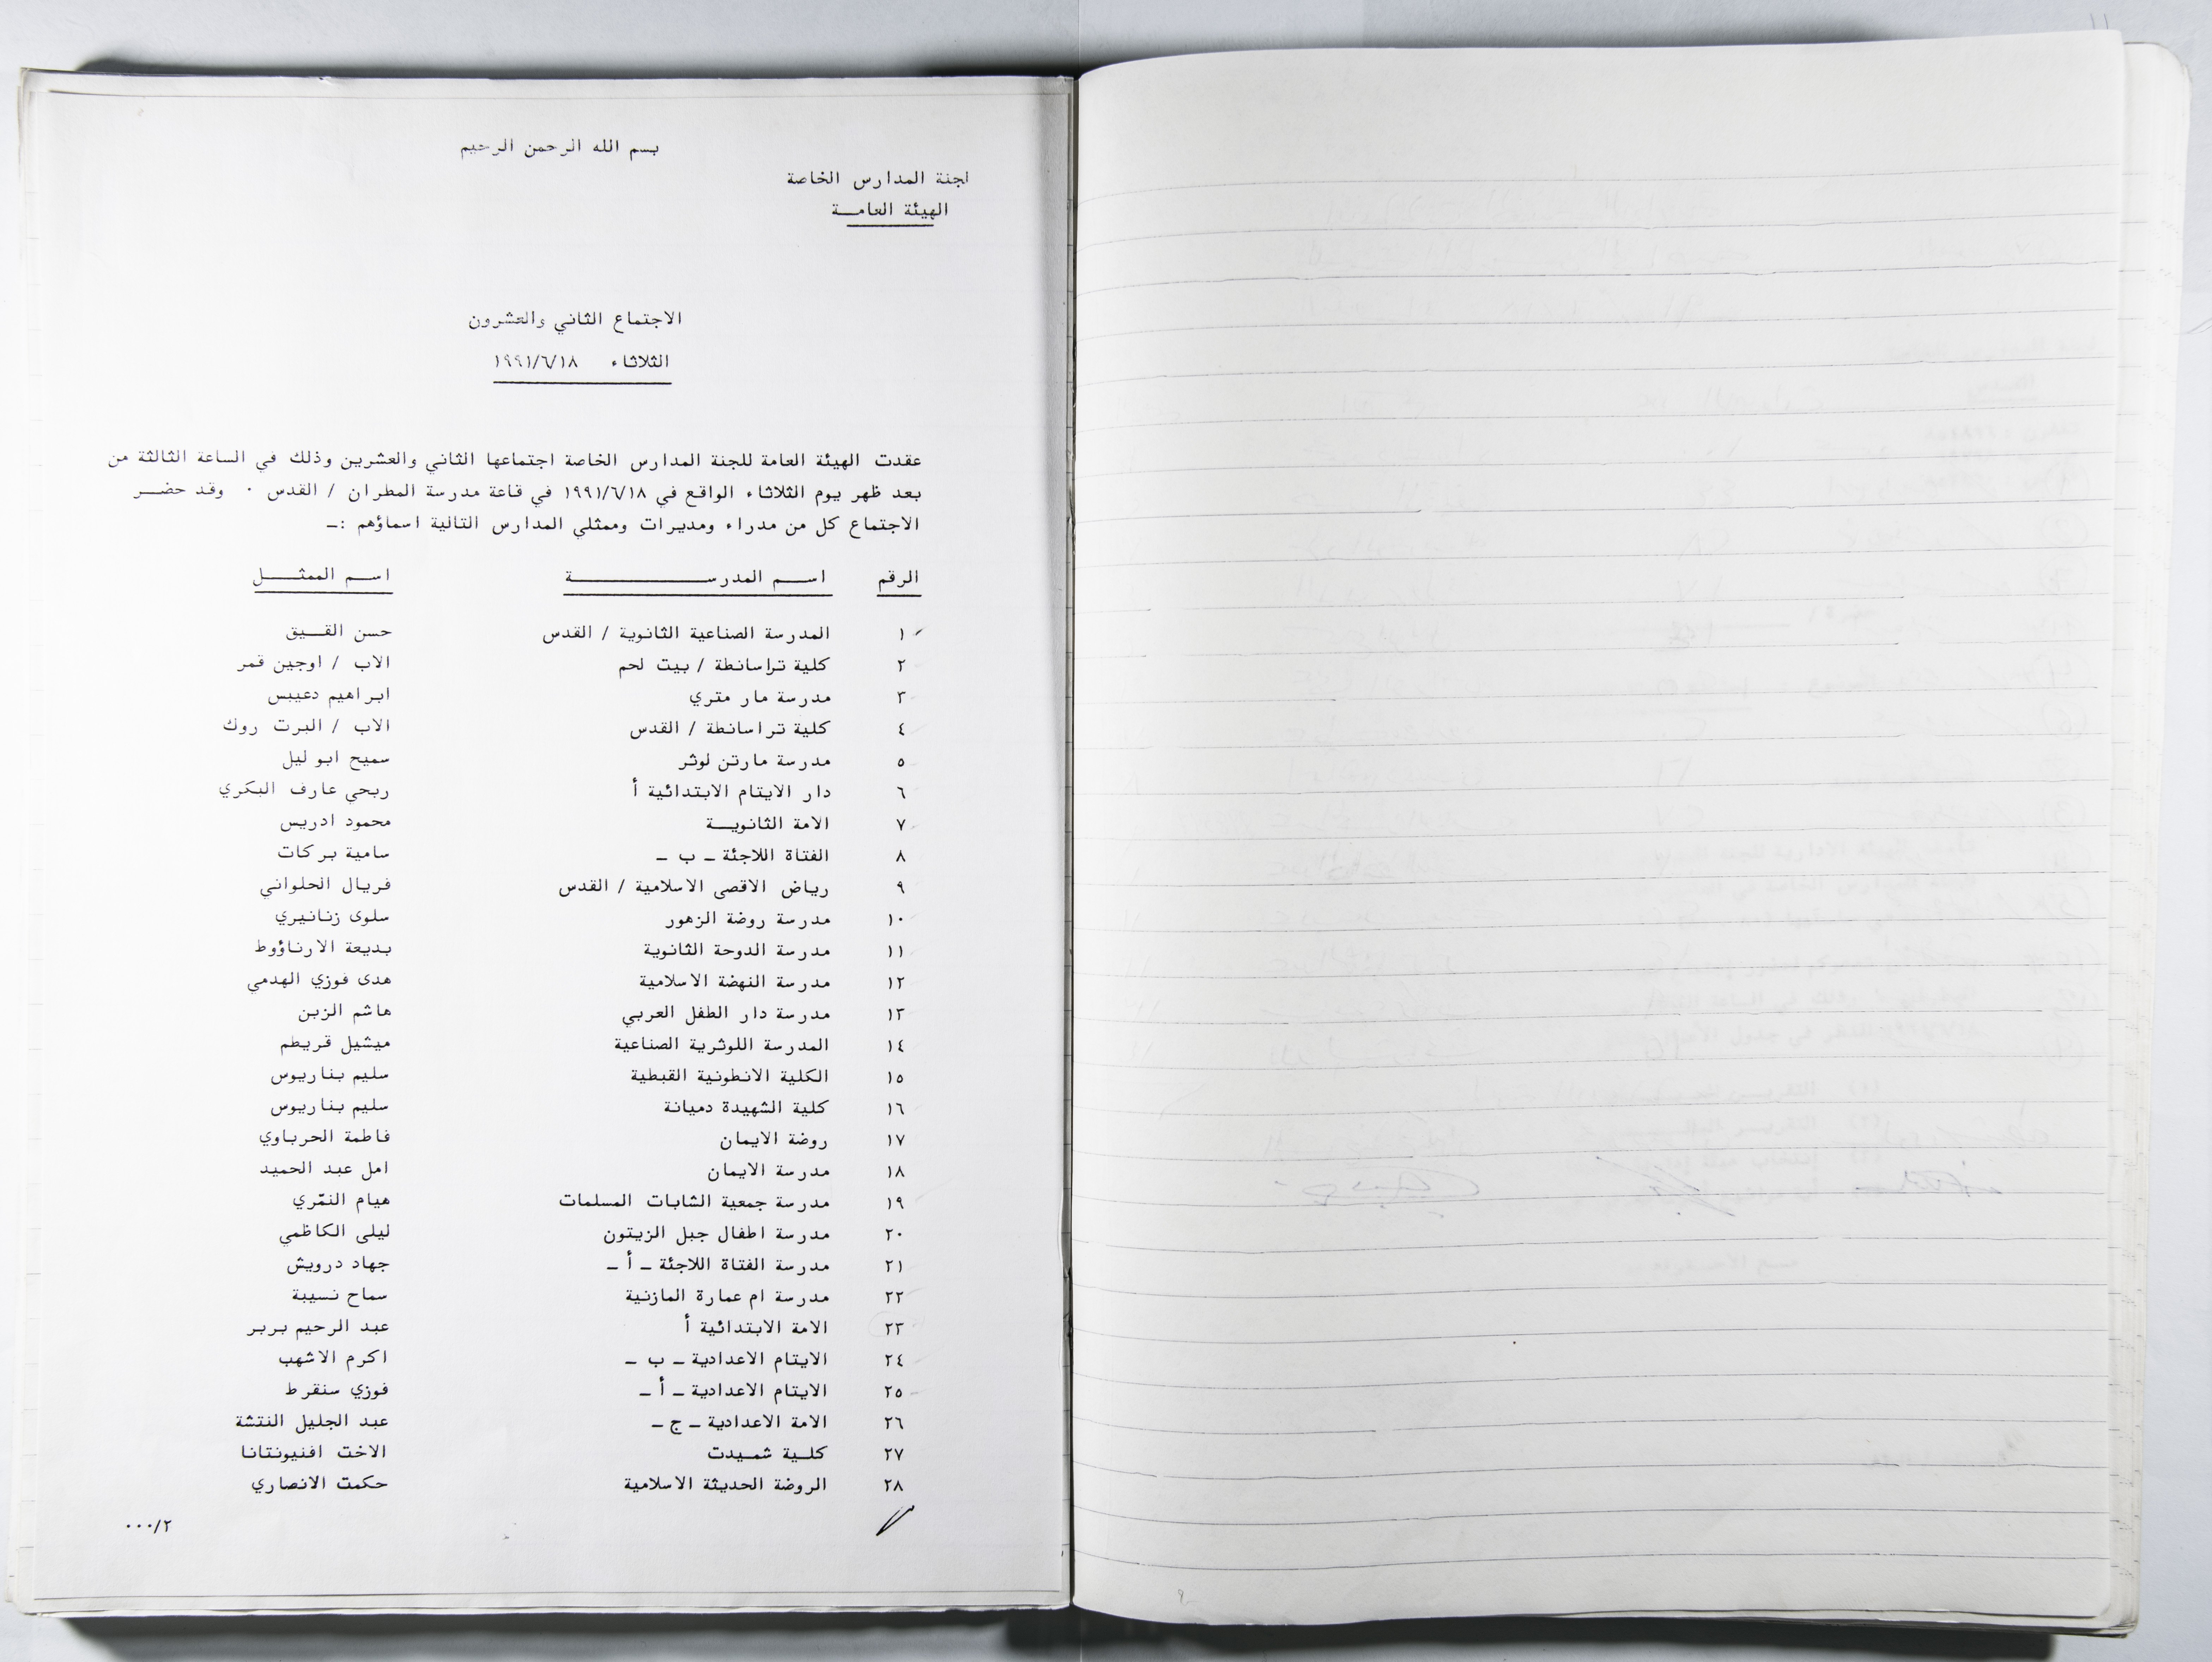 بسم الله الرحمن الرحيم
لجنة المدارس الخاصة
الهيئة العامـــة
الاجتماع الثاني والعشرون
الثلاثاء ١٩٩١/٦/١٨
عقدت الهيئة العامة للجنة المدارس الخاصة اجتماعها الثاني والعشرين وذلك في الساعة الثالثة من
بعد ظهر يوم الثلاثاء الواقع في ١٩٩١/٦/١٨ في قاعة مدرسة المطران / القدس ٠ وقد حضـــر
الاجتماع كل من مدراء ومديرات وممثلي المدارس التالية اسماؤهم :ـ
الرقم اســـم المدرســـــــــــــــــة اســـم الممثـــــل
١ المدرسة الصناعية الثانوية / القدس حسن القـــيق
٢ كلية تراسانطة / بيت لحم الاب / اوجين قمر
٣ مدرسة مار متري ابراهيم دعيبس
٤ كلية تراسانطة / القدس الاب / البرت روك
٥ مدرسة مارتن لوثر سميح ابو ليل
٦ دار الايتام الابتدائية أ ربحي عارف البكري
٧ الامة الثانويـــة محمود ادريس
٨ الفتاة اللاجئة ـ ب ـ سامية بركات
٩ رياض الاقصى الاسلامية / القدس فريال الحلواني
١٠ مدرسة روضة الزهور سلوى زنانيري
١١ مدرسة الدوحة الثانوية بديعة الارناؤوط
١٢ مدرسة النهضة الاسلامية هدى فوزي الهدمي
١٣ مدرسة دار الطفل العربي هاشم الزبن
١٤ المدرسة اللوثرية الصناعية ميشيل قريطم
١٥ الكلية الانطونية القبطية سليم بناريوس
١٦ كلية الشهيدة دميانة سليم بناريوس
١٧ روضة الايمان فاطمة الحرباوي
١٨ مدرسة الايمان امل عبد الحميد
١٩ مدرسة جمعية الشابات المسلمات هيام النمّري
٢٠ مدرسة اطفال جبل الزيتون ليلى الكاظمي
٢١ مدرسة الفتاة اللاجئة ـ أ ـ جهاد درويش
٢٢ مدرسة ام عمارة المازنية سماح نسيبة
٢٣ الامة الابتدائية أ عبد الرحيم بربر
٢٤ الايتام الاعدادية ـ ب ـ اكرم الاشهب
٢٥ الايتام الاعدادية ـ أ ـ فوزي سنقرط
٢٦ الامة الاعدادية ـ ج ـ عبد الجليل النتشة
٢٧ كلـــية شمـــيدت الاخت افنيونتانا
٢٨ الروضة الحديثة الاسلامية حكمت الانصاري
٠٠٠/٢